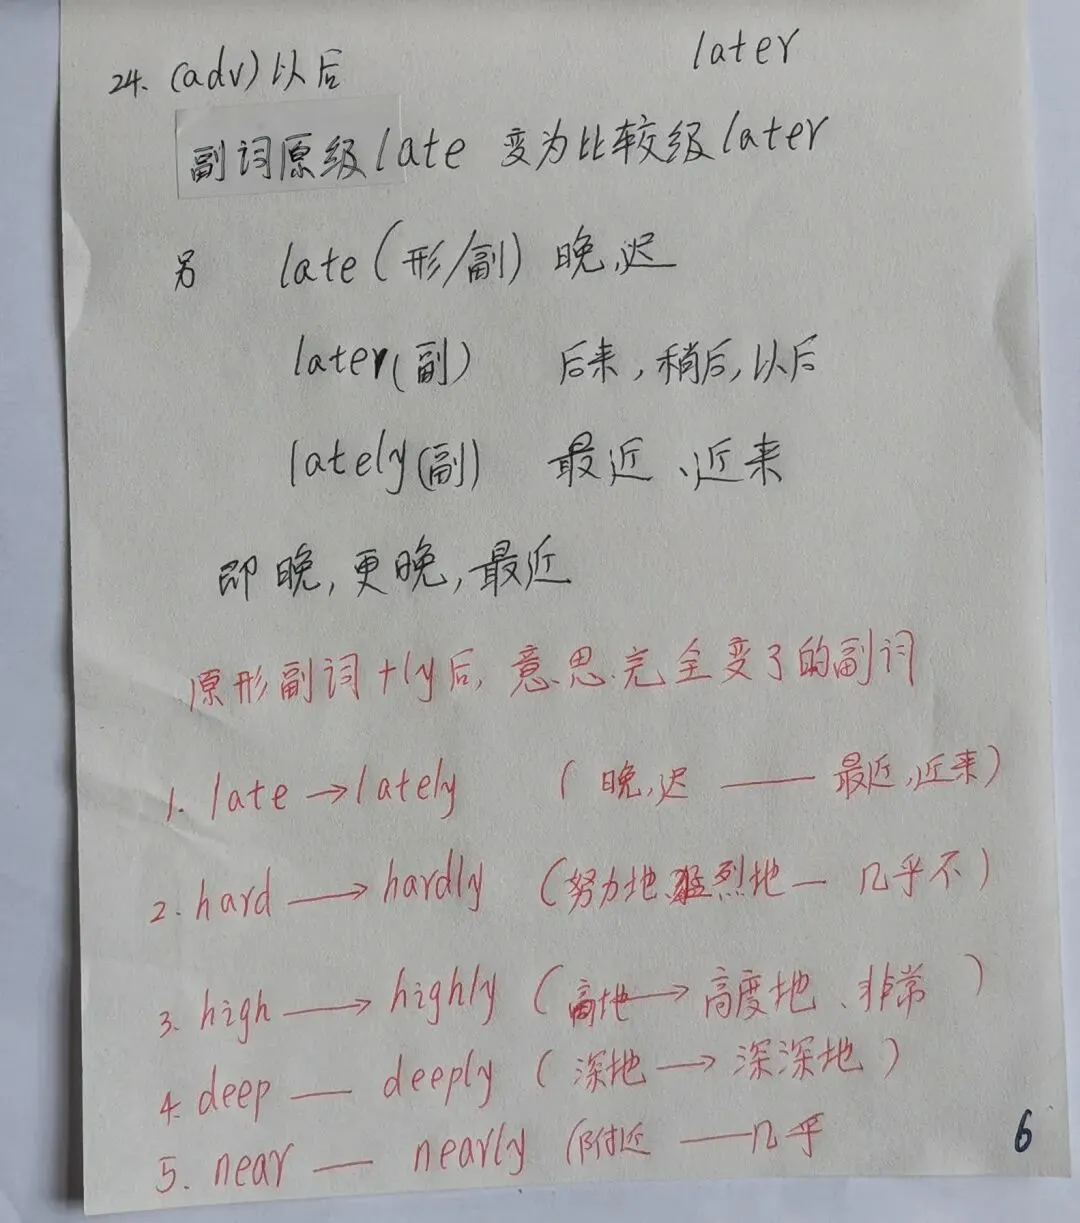 24. (adv) 以后 later
副词原级late 变为比较级later
另 late (形/副) 晚,迟
later(副) 后来,稍后,以后
lately(副) 最近、近来
即晚,更晚,最近
原形副词+ly后,意思完全变了的副词
1. late→lately (晚,迟——最近,近来)
2. hard——→hardly (努力地,猛烈地—几乎不)
3. high——→highly (高地—→高度地、非常)
4. deep — deeply (深地—→深深地)
5. near — nearly (附近——几乎
6